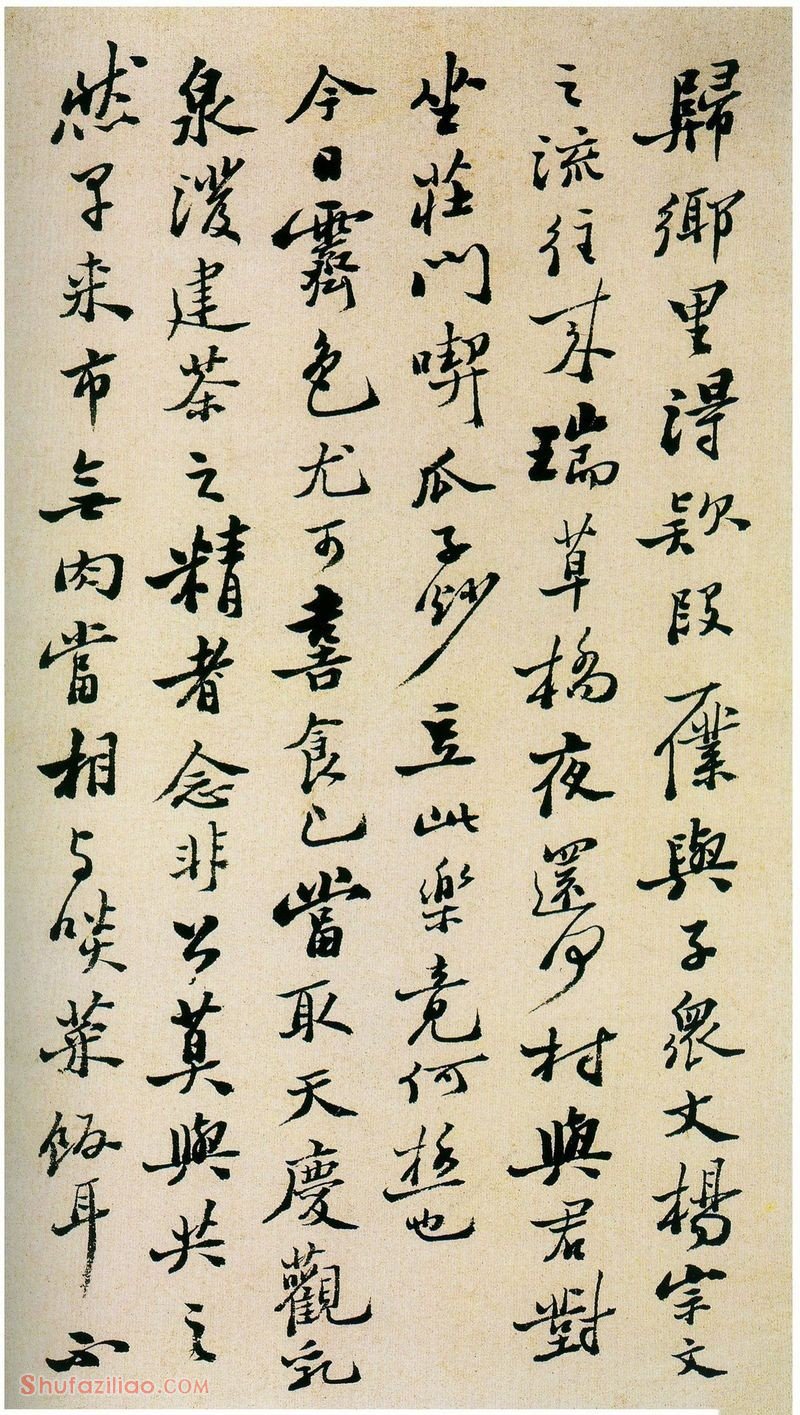 歸鄉里得款段一僕與子衆丈楊宗文
之流往來瑞草橋夜還何村與君對
坐莊門喫瓜子炒豆此樂竟何極也
今日霽色尤可喜食已當取天慶觀乳
泉潑建茶之精者念非公莫與共之
然早來市無肉當相与啖菜飯耳不
Shufaziliao.COM